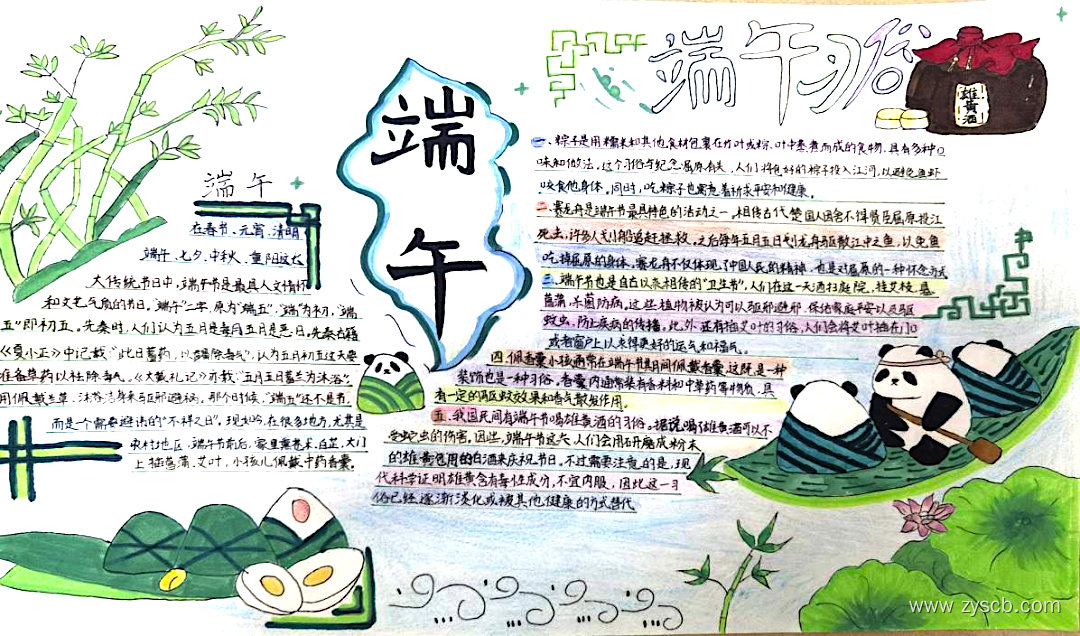 端午
在春节、元宵、清明、
端午、七夕、中秋、重阳这七
大传统节日中,端午节是最具人文情怀
和文艺气质的节日。端午二字,原为"端五","端"为初,"端
五"即初五。先秦时,人们认为五月是毒月五日是恶日。先秦古籍
《夏小正》中记载:"此日蓄药,以蠲除毒气",认为五月初五这天要
准备草药以祛除毒气。《大戴礼记》亦载"五月五日蓄兰为沐浴",
用佩戴兰草、沐浴洁身来驱邪避祸。那个时候,"端五"还不是节,
而是一个需要避讳的"不祥之日"。现如今,在很多地方,尤其是
农村地区,端午节前后,家里熏苍术、白芷,大门
上插菖蒲、艾叶,小孩儿佩戴中药香囊。
端
午
端午习俗
雄黄酒
一、粽子是用糯米和其他食材包裹在竹叶或粽叶中蒸煮而成的食物,具有多种口
味和做法。这个习俗与纪念屈原有关,人们将包好的粽子投入江河,以避免鱼虾
咬食他身体。同时,吃粽子也寓意着祈求平安和健康。
二、赛龙舟是端午节最具特色的活动之一,相传古代楚国人因舍不得贤臣屈原投江
死去,许多人划船追赶拯救。之后每年五月五日划龙舟驱散江中之鱼,以免鱼
吃掉屈原的身体。赛龙舟不仅体现了中国人民的精神,也是对屈原的一种怀念方式
三、端午节也是自古以来相传的"卫生节",人们在这一天洒扫庭院,挂艾枝,悬
菖蒲,杀菌防病。这些植物被认为可以驱邪避邪,保佑家庭平安以及驱
蚊虫,防止疾病的传播。此外,还有插艾叶的习俗,人们会将艾叶插在门口
或者窗户上以求得更好的运气和福气。
四、佩香囊小孩通常在端午节期间佩戴香囊,这既是一种
装饰也是一种习俗。香囊内通常装有香料和中草药等物质,具
有一定的驱蚊效果和香气散发作用。
五、我国民间有端午节喝雄黄酒的习俗。据说喝雄黄酒可以不
受蛇虫的伤害。因此,端午节这天人们会用研磨成粉末
的雄黄泡用的白酒来庆祝节日。不过需要注意的是,现
代科学证明雄黄含有毒性成分,不宜内服,因此这一习
俗已经逐渐淡化或被其他健康的方式替代
www.zyscb.com